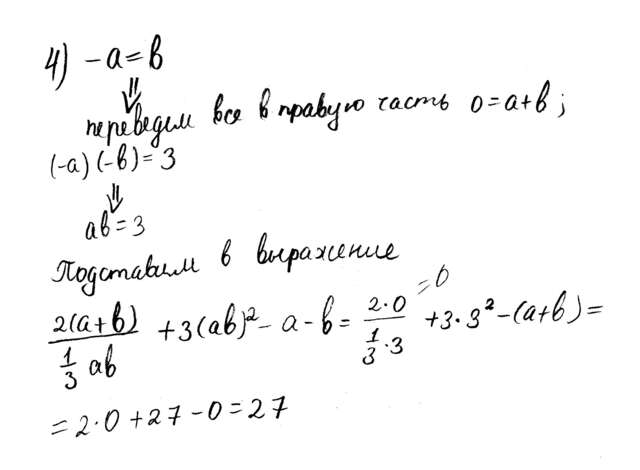 4) -a=b
⇓
переведем все в правую часть 0=a+b;
(-a)(-b)=3
⇓
ab=3
Подставим в выражение
=0
2(a+b)/(1/3 ab) +3(ab)²-a-b= 2·0/(1/3·3) +3·3²-(a+b)=
=2·0+27-0=27